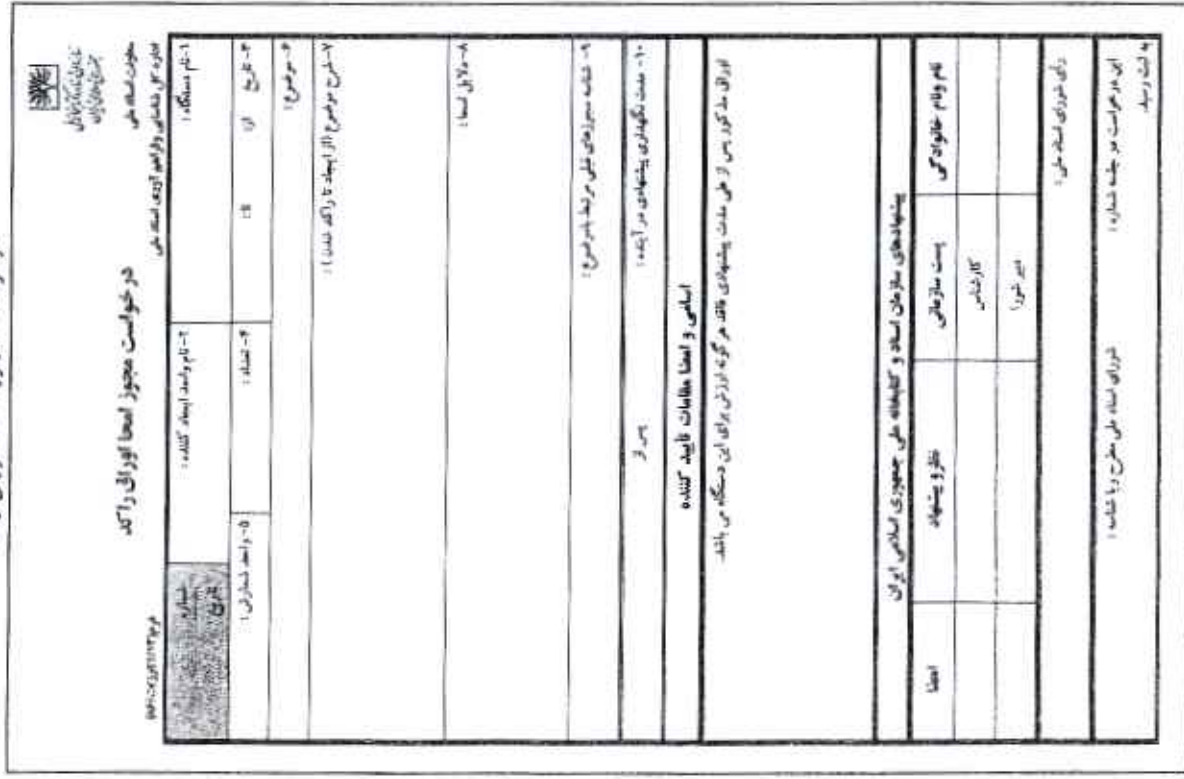 معاونت اسناد ملی
اداره کل شناسایی و فراهم آوری اسناد ملی
درخواست مجوز امحا اوراق راکد
شماره:
تاریخ:
۱- نام دستگاه:
۲- نام واحد ایجاد کننده:
۳- تاریخ از: تا:
۴- تعداد:
۵- واحد شمارش:
۶- موضوع:
۷- شرح موضوع (از ایجاد تا راکد شدن):
۸- دلایل امحا:
۹- شناسه مجوزهای قبلی مرتبط با موضوع:
۱۰- مدت نگهداری پیشنهادی در آینده: پس از
اسامی و امضا مقامات تایید کننده
اوراق مذکور پس از طی مدت پیشنهادی فاقد هرگونه ارزش برای این دستگاه می باشد.
پیشنهادهای سازمان اسناد و کتابخانه ملی جمهوری اسلامی ایران
نام ونام خانوادگی
پست سازمانی
نظر و پیشنهاد
امضا
کارشناس
دبیر شورا
رأی شورای اسناد ملی:
این درخواست در جلسه شماره: شورای اسناد ملی مطرح و با شناسه:
به ثبت رسید.